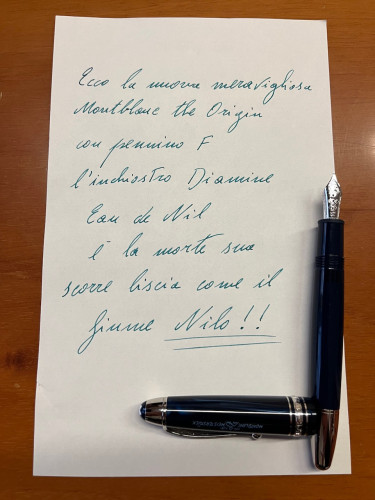 Ecco la nuova meravigliosa
Montblanc the Origin
con pennino F
l'inchiostro Diamine
Eau de Nil
è la morte sua
scorre liscia come il
fiume Nilo!!